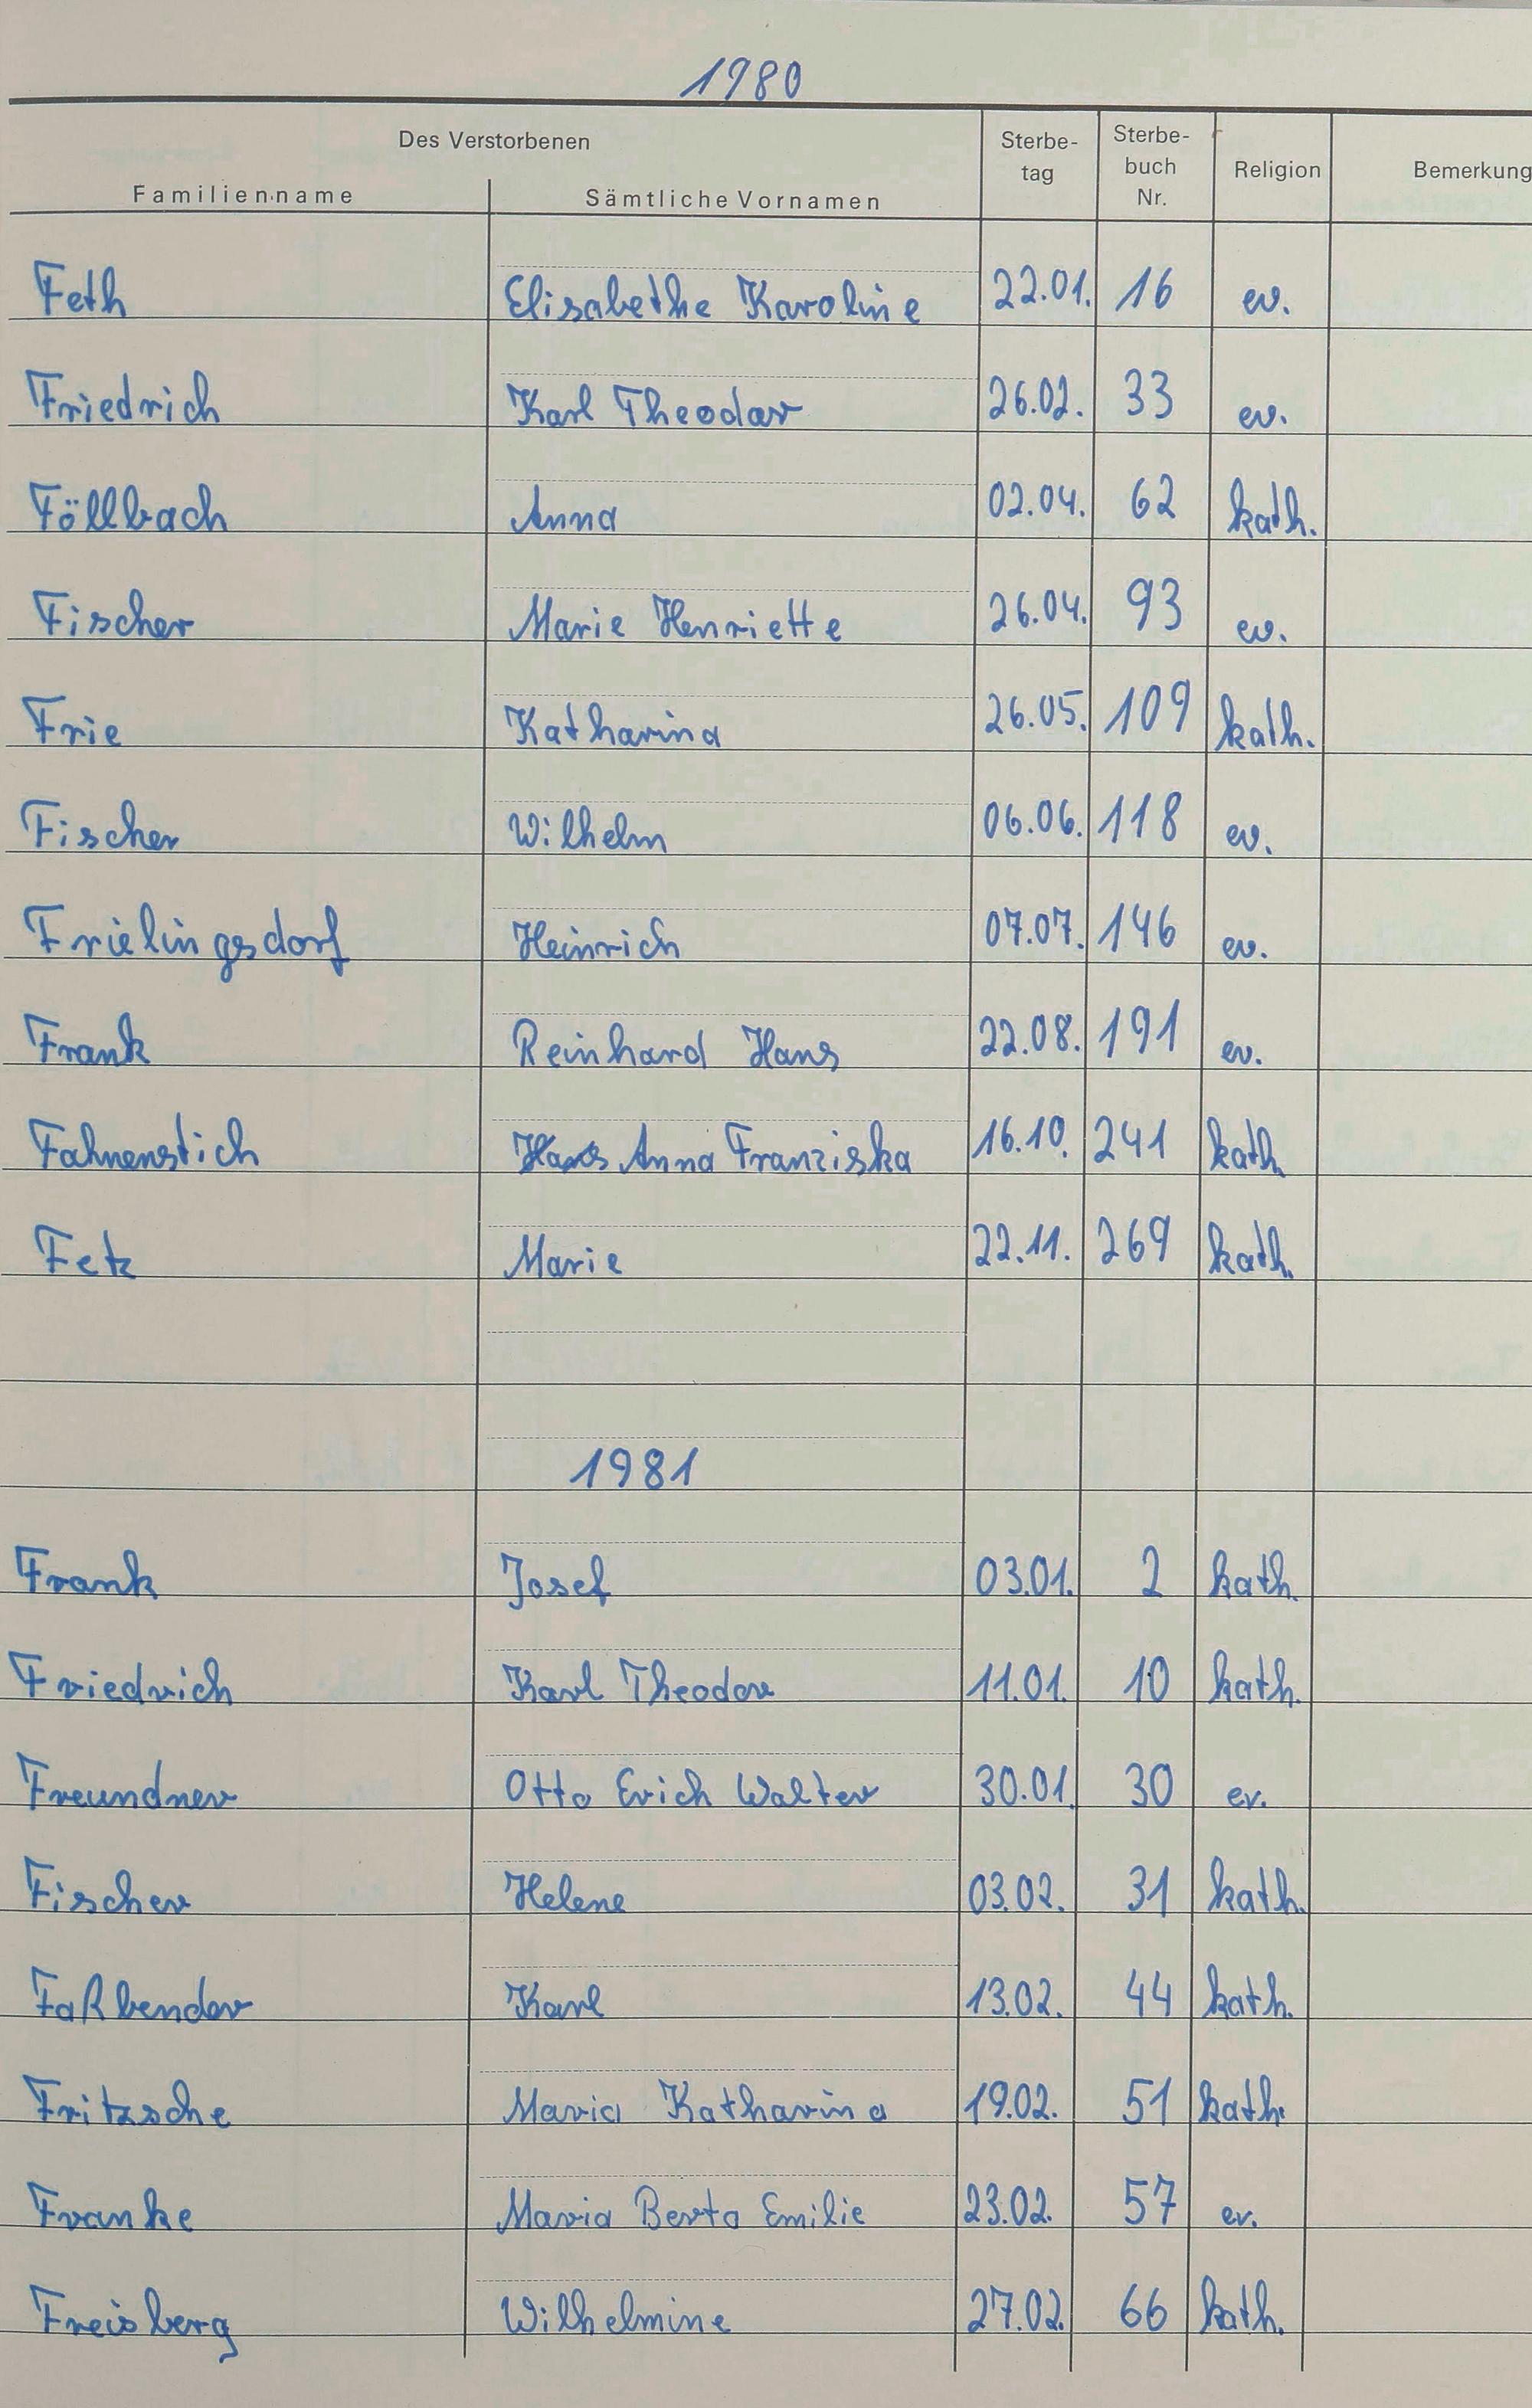 1980
Des Verstorbenen
Familienname Sämtliche Vornamen Sterbe-tag Sterbe-buch Nr. Religion Bemerkung
Feth Elisabethe Karoline 22.01. 16 ev.
Friedrich Karl Theodor 26.02. 33 ev.
Föllbach Anna 02.04. 62 kath.
Fischer Marie Henriette 26.04. 93 ev.
Frie Katharina 26.05. 109 kath.
Fischer Wilhelm 06.06. 118 ev.
Frielingsdorf Heinrich 07.07. 146 ev.
Frank Reinhard Hans 22.08. 191 ev.
Fahnenstich Anna Franziska 16.10. 241 kath.
Fetz Marie 22.11. 269 kath.
1981
Frank Josef 03.01. 2 kath.
Friedrich Karl Theodor 11.01. 10 kath.
Freundner Otto Erich Walter 30.01. 30 ev.
Fischer Helene 03.02. 31 kath.
Faßbender Karl 13.02. 44 kath.
Fritzsche Maria Katharina 19.02. 51 kath.
Franke Maria Berta Emilie 23.02. 57 ev.
Freisberg Wilhelmine 27.02. 66 kath.